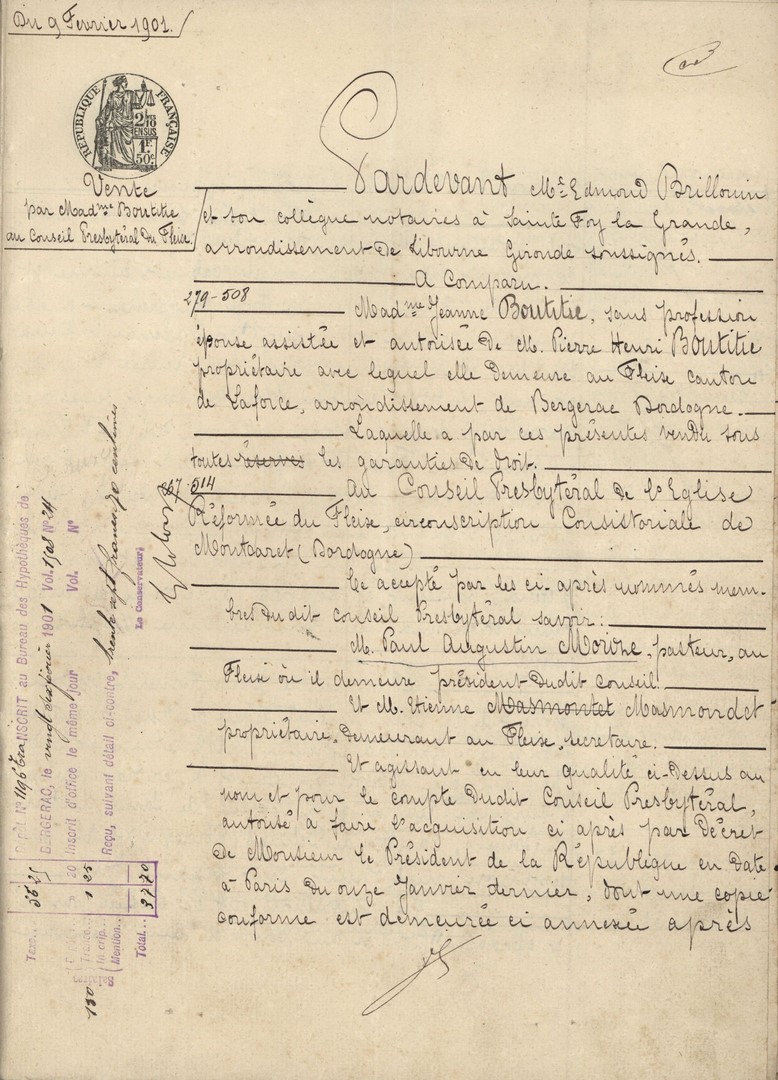 Du 9 Février 1901.
RÉPUBLIQUE FRANÇAISE
2/10
EN SUS
1F.
50c
Vente
par Madme Boutitie
au Conseil Presbytéral du Fleise.
Pardevant Me Edmond Brillouin
et son collègue notaires à Sainte Foy la Grande,
arrondissement de Libourne Gironde soussignés.
A Comparu.
279-508
Madme Jeanne Boutitie, sans profession
épouse assistée et autorisée de M. Pierre Henri Boutitie
propriétaire avec lequel elle demeure au Fleise canton
de Laforce, arrondissement de Bergerac Dordogne.
Laquelle a par ces présentes vendu sous
toutes réserves les garanties de droit.
67-514
Au Conseil Presbytéral de l'Eglise
Réformée du Fleise, circonscription Consistoriale de
Montcaret (Dordogne)
Ce accepté par les ci-après nommés mem-
bres dudit conseil Presbytéral savoir:
M. Paul Augustin Moivre, pasteur, au
Fleise où il demeure président dudit conseil.
Et M. Etienne Masmontet Masmondet
propriétaire, demeurant au Fleise, secrétaire.
Et agissant en leur qualité ci-dessus au
nom et pour le compte dudit Conseil Presbytéral,
autorisé à faire l'acquisition ci après par Décret
de Monsieur le Président de la République en date
à Paris du onze Janvier dernier, dont une copie
conforme est demeurée ci annexée après
TRANSCRIT au Bureau des Hypothèques de
BERGERAC, le vingt 1901 Vol. N° 24
Inscrit d'office le même jour Vol. N°
Reçu, suivant détail ci-contre, trente sept francs 70 centimes
Le Conservateur,
Taxe... 36 25
20
1 25
Mention...
Total... 37 70
130